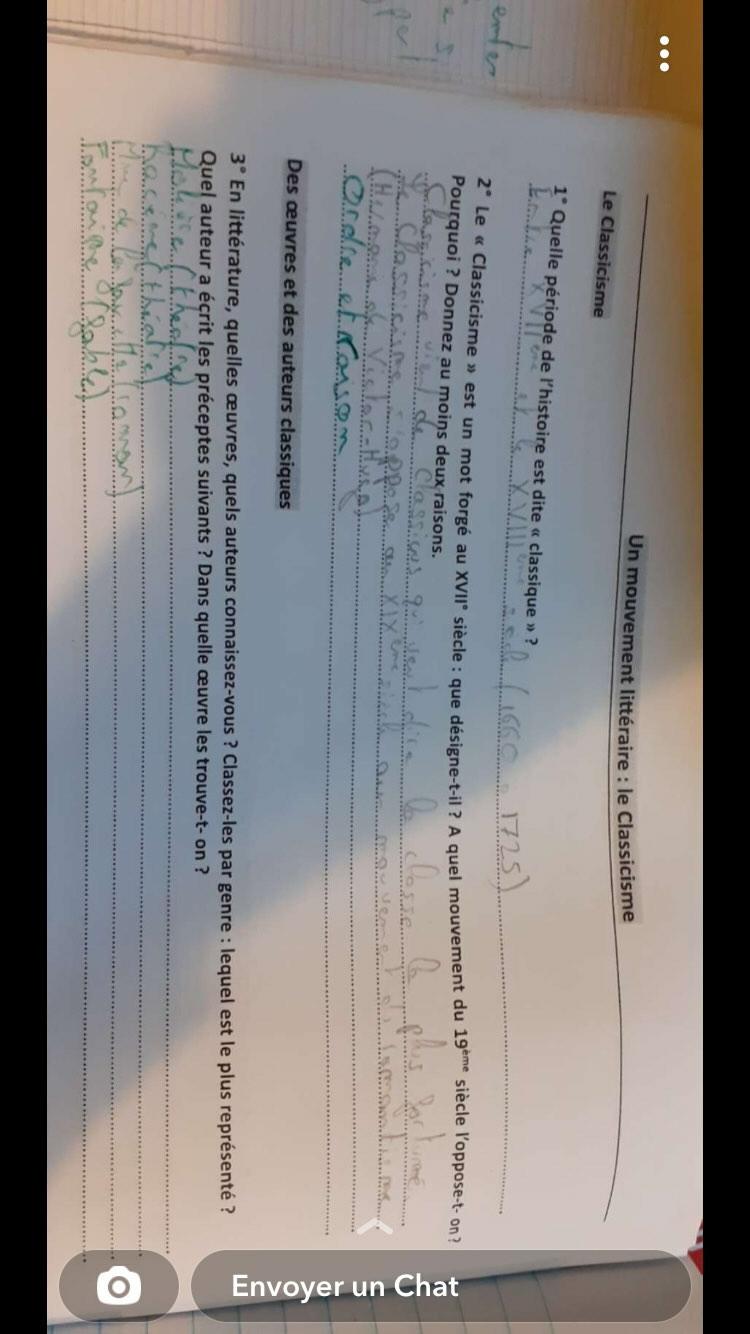 Un mouvement littéraire : le Classicisme
Le Classicisme
1° Quelle période de l'histoire est dite « classique » ?
XVII et le XVIII (1660 1725)
2° Le « Classicisme » est un mot forgé au XVII° siècle : que désigne-t-il ? A quel mouvement du 19ème siècle l'oppose-t- on ?
Pourquoi ? Donnez au moins deux raisons.
Classicisme vient de classicus qui veut dire la classe la plus fortuné
le classicisme s'oppose au XIXème siècle aux mouvement du romantisme
(Hernani de Victor-Hugo)
Ordre et raison
Des œuvres et des auteurs classiques
3° En littérature, quelles œuvres, quels auteurs connaissez-vous ? Classez-les par genre : lequel est le plus représenté ?
Quel auteur a écrit les préceptes suivants ? Dans quelle œuvre les trouve-t- on ?
Molière (théâtre)
Racine (théâtre)
Mme de la
Fontaine (fable)
Envoyer un Chat